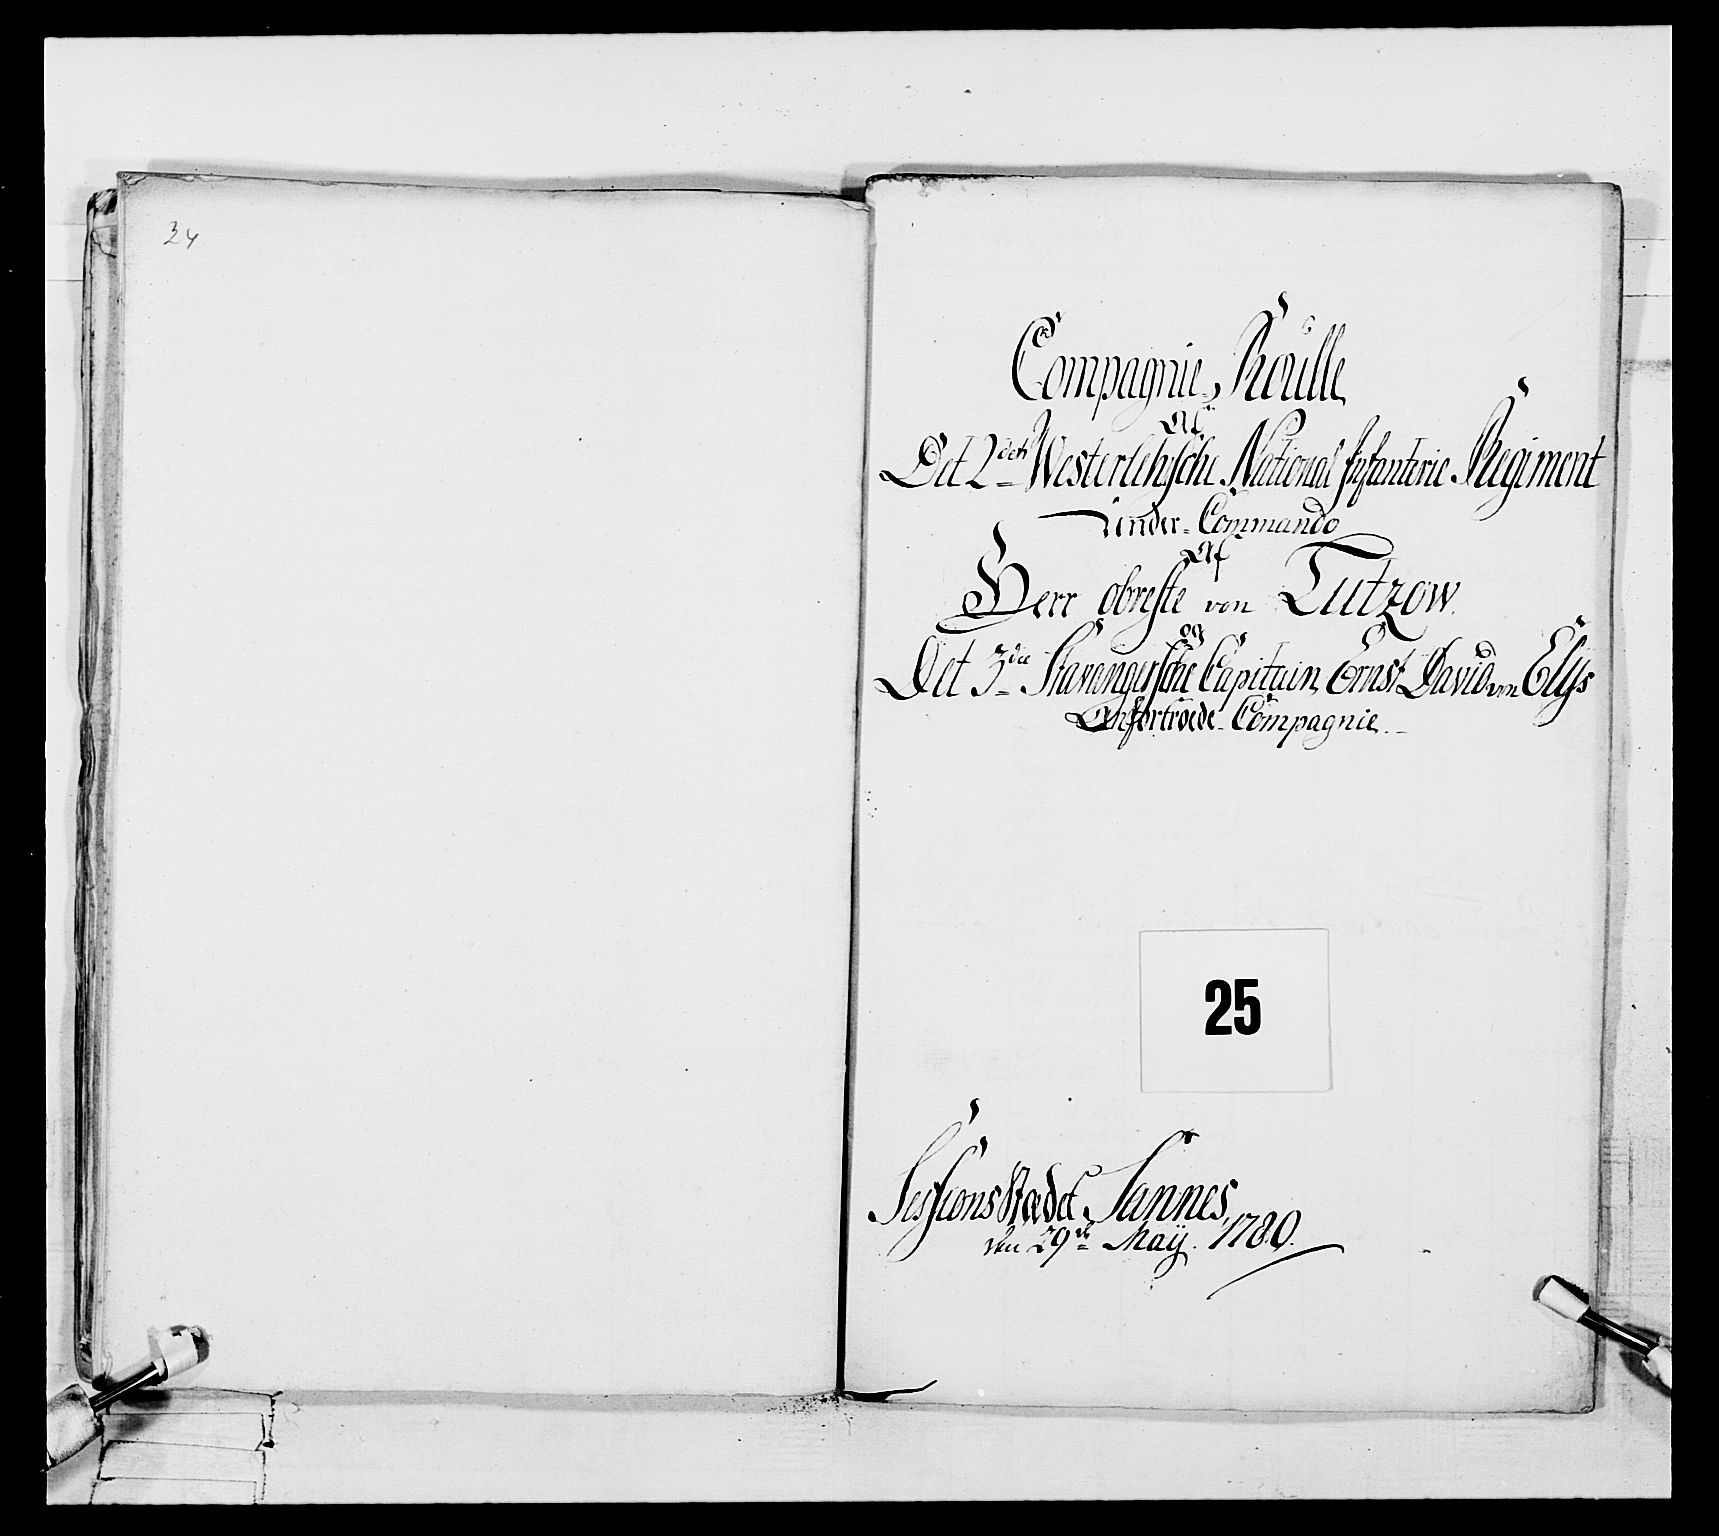 24
Compagnie Roulle
Af
Det 2det Westerlehnsche National Infanterie Regiment
under Commando
Af
Herr obreste von Lutzow.
og
Det 3die Stavangersche Capitain Ernst David von Elys
Anfortroede Compagnie.
25
Sessions Stædet Sannes,
den 29de Maÿ. 1780.